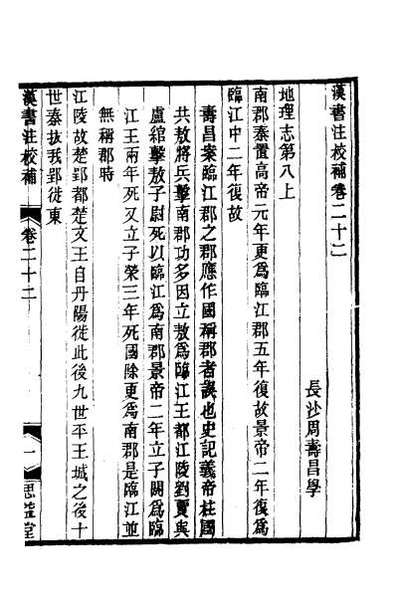 漢書注校補卷二十二
長沙周壽昌學
地理志第八上
南郡秦置高帝元年更爲臨江郡五年復故景帝二年復爲
臨江中二年復故
壽昌案臨江郡之郡應作國稱郡者誤也史記義帝柱國
共敖將兵擊南郡功多因立敖爲臨江王都江陵劉賈與
盧綰擊敖子尉死以臨江爲南郡景帝二年立子閼爲臨
江王兩年死又立子榮三年死國除更爲南郡是臨江並
無稱郡時
江陵故楚郢都楚文王自丹陽徙此後九世平王城之後十
世秦拔我郢徙東
漢書注校補
卷二十二
一
思益堂